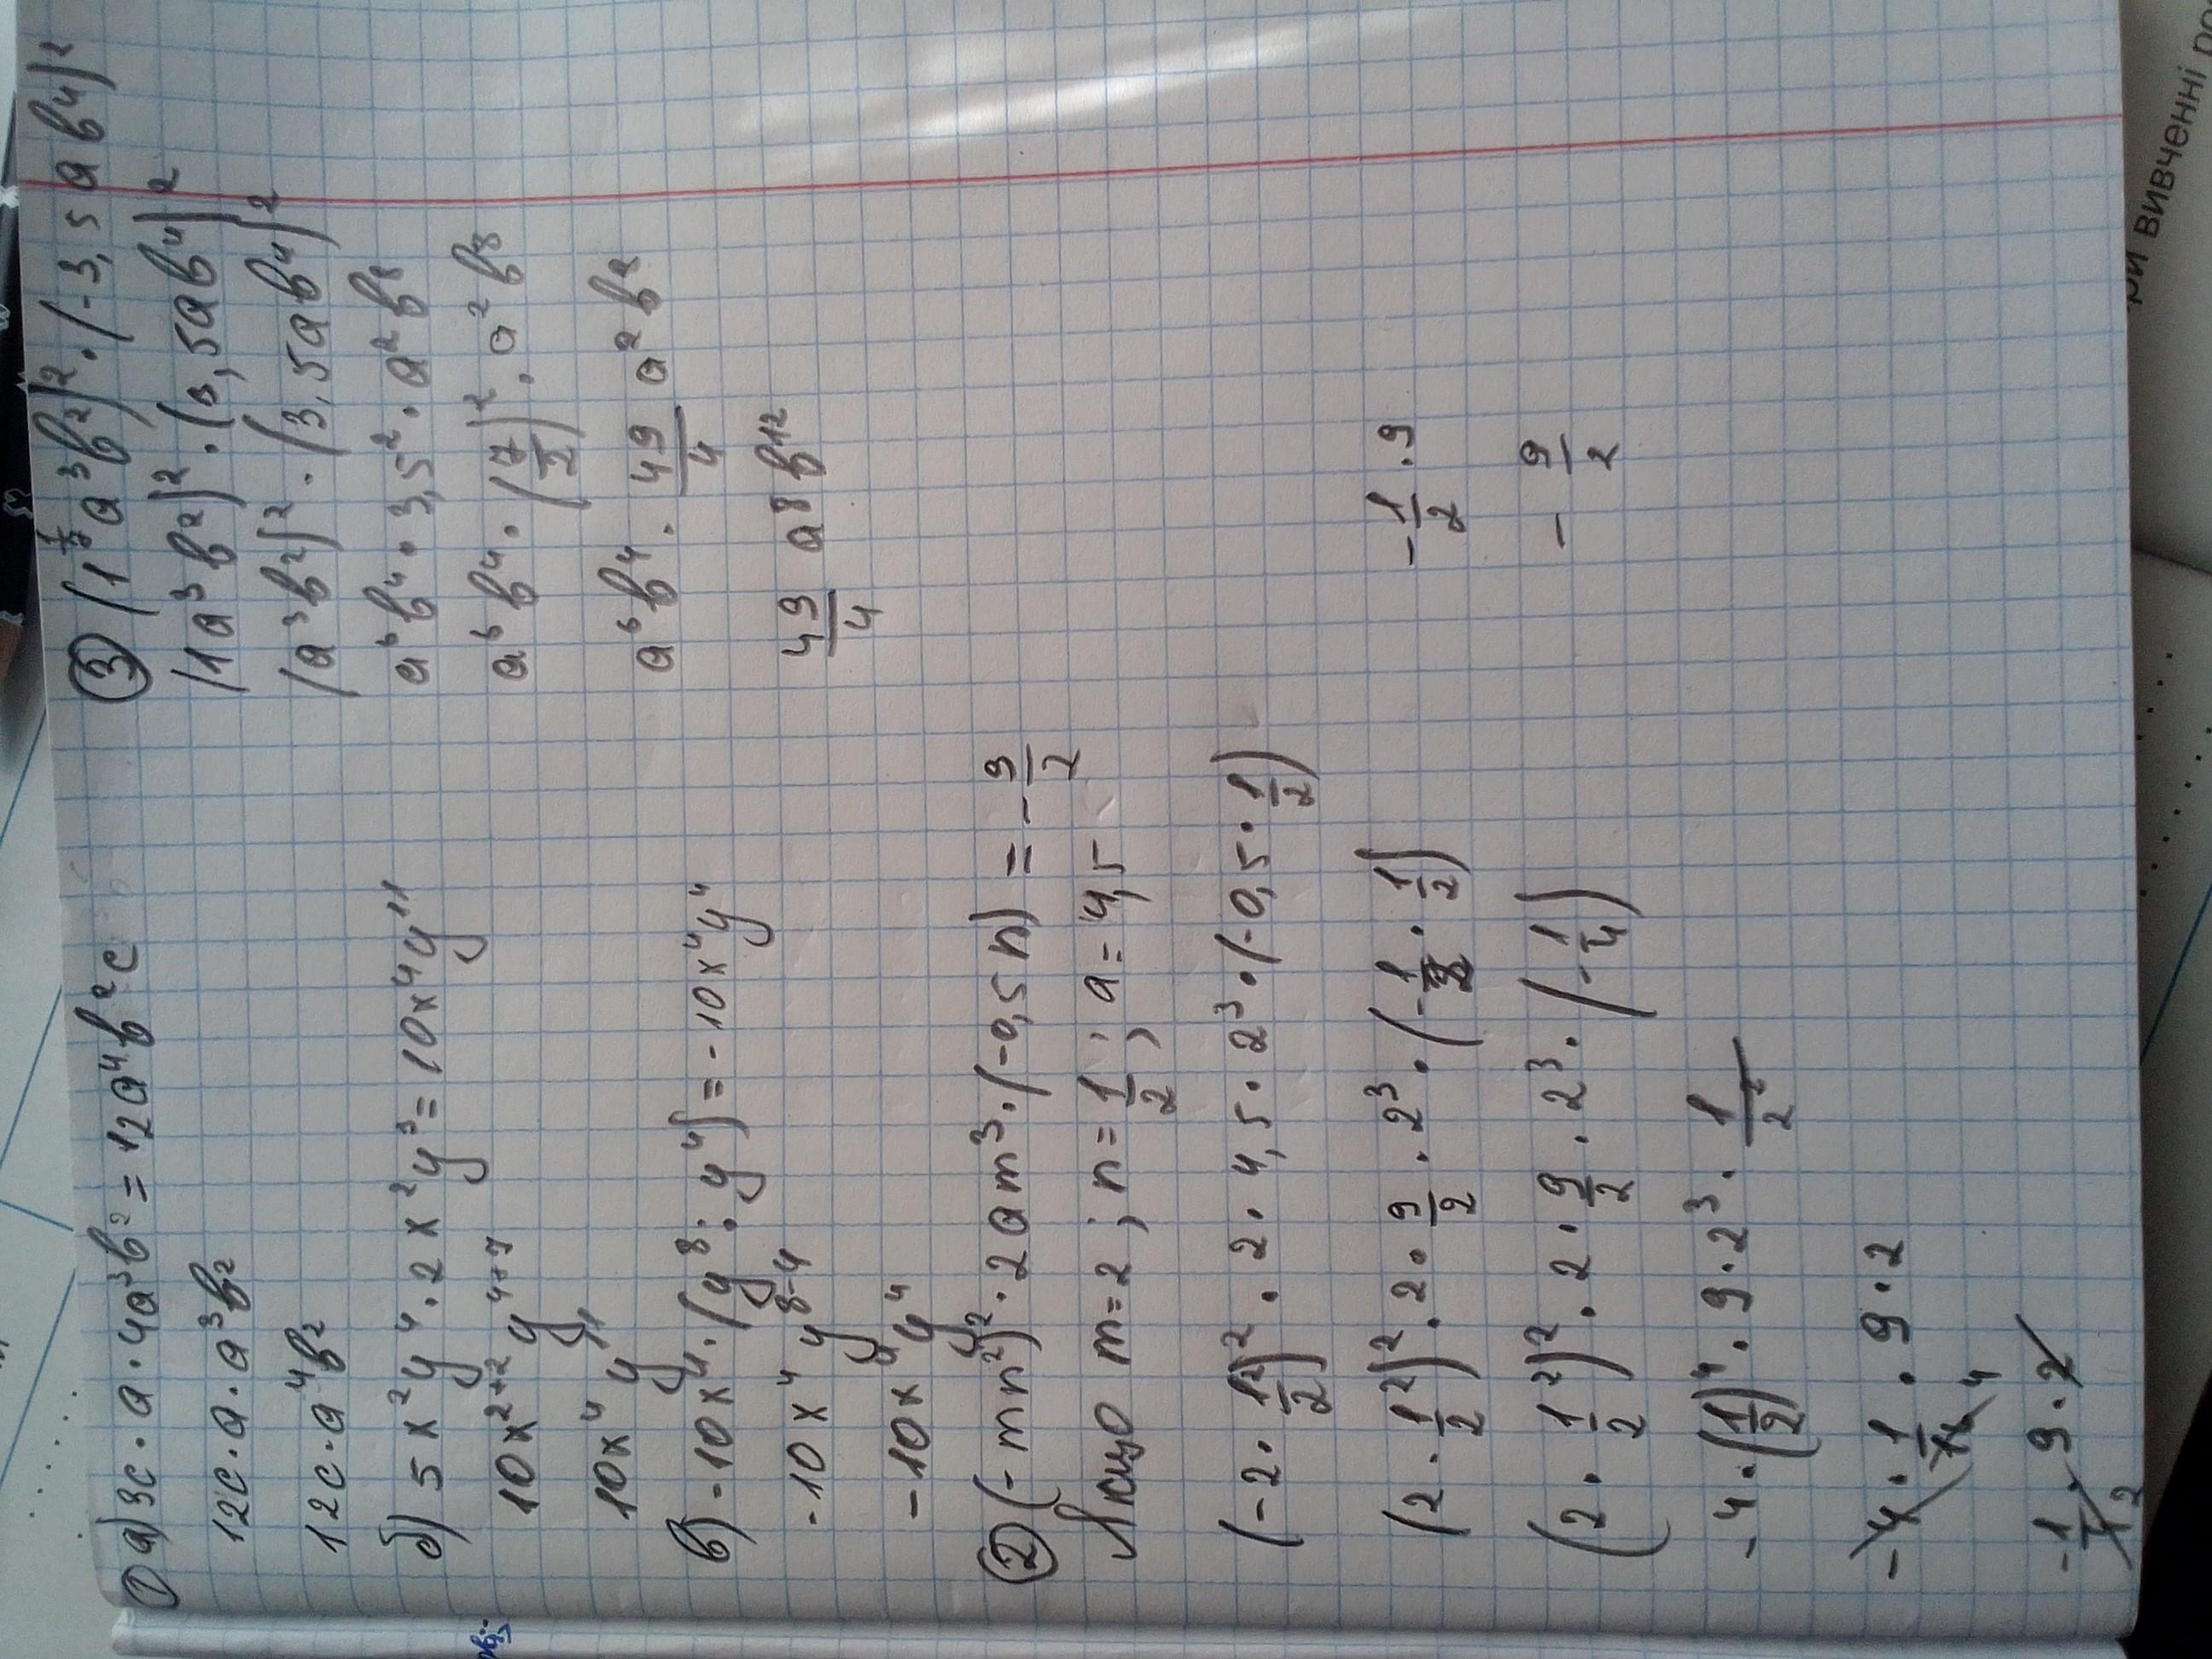 ① а) 3c · a · 4a³b² = 12a⁴b²c
12c · a · a³b²
12c · a⁴b²
б) 5x²y⁴ · 2x²y⁷ = 10x⁴y¹¹
10x²⁺² y⁴⁺⁷
10x⁴y¹¹
в) -10x⁴ · (y⁸ : y⁴) = -10x⁴y⁴
-10x⁴ y⁸⁻⁴
-10x⁴y⁴
② (-mn²)² · 2am³ · (-0,5n) = -9/2
Якщо m=2 ; n=1/2 ; a=4,5
(-2 · 1²/2)² · 2 · 4,5 · 2³ · (-0,5 · 1/2)
(2 · 1/2²)² · 2 · 9/2 · 2³ · (-1/2 · 1/2)
(2 · 1/2²)² · 2 · 9/2 · 2³ · (-1/4)
-4 · (1/2)⁴ · 9 · 2³ · 1/2
-4 · 1 · 9 · 2
4
-1 · 9 · 2
2
-1/2 · 9
-9/2
③ (1 a³b²)² · (-3,5ab⁴)²
(1a³b²)² · (3,5ab⁴)²
(a³b²)² · (3,5ab⁴)²
a⁶b⁴ · 3,5² · a²b⁸
a⁶b⁴ · (7/2)² · a²b⁸
a⁶b⁴ · 49/4 a²b⁸
49/4 a⁸b¹²
ри вивченні